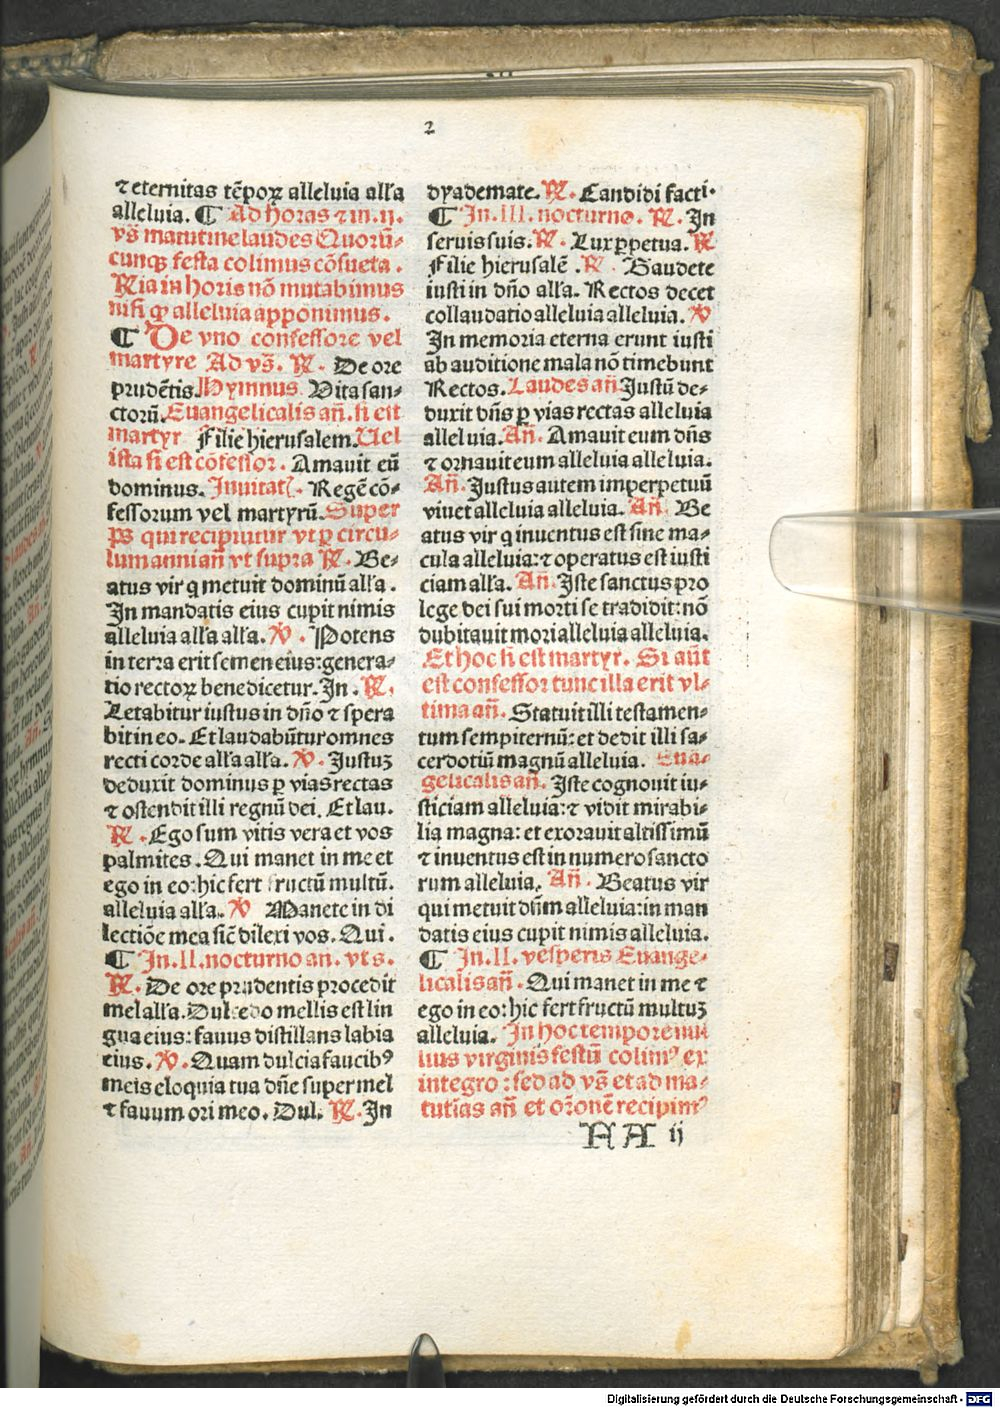 2
⁊ eternitas tēporꝝ alleluia all'a
alleluia. ¶ Ad horas ⁊ in .ii.
vs̄ matutine laudes Quorū-
cunqꝫ festa colimus cōsueta.
Ria in horis nō mutabimus
nisi ꝙ alleluia apponimus.
¶ De vno confessore vel
martyre Ad vs̄. ℟. De ore
prudētis. Hymnus. Uita san-
ctorū. Euangelicalis añ. si est
martyr Filie hierusalem. Uel
ista si est cōfessor. Amauit eū
dominus. Inuitat. Regē cō-
fessorum vel martyrū. Super
ps̄ qui recipiuntur vt ꝑ circu-
lum anni añ vt supra ℟. Be-
atus vir q̇ metuit dominū all'a.
In mandatis eius cupit nimis
alleluia all'a all'a. ℣. Potens
in terra erit semen eius: genera-
tio rectorꝝ benedicetur. In. ℟.
Letabitur iustus in dño ⁊ spera
bit in eo. Et laudabūtur omnes
recti corde all'a all'a. ℣. Justuꝫ
deduxit dominus ꝑ vias rectas
⁊ ostendit illi regnū dei. Et lau.
℟. Ego sum vitis vera et vos
palmites. Qui manet in me et
ego in eo: hic fert fructū multū.
alleluia all'a. ℣ Manete in di
lectiōe mea sic̄ dilexi vos. Qui.
¶ In .II. nocturno an. vt s.
℟. De ore prudentis procedit
mel all'a. Dulcedo mellis est lin
gua eius: fauus distillans labia
eius. ℣. Quam dulcia faucibꝰ
meis eloquia tua dñe super mel
⁊ fauum ori meo. Dul. ℟. In
dyademate. ℟. Candidi facti.
¶ In .III. nocturno. ℟. In
seruis suis. ℟. Lux ꝑpetua. ℟
Filie hierusalē. ℟. Gaudete
iusti in dño all'a. Rectos decet
collaudatio alleluia alleluia. ℣
In memoria eterna erunt iusti
ab auditione mala nō timebunt
Rectos. Laudes añ Justū de-
duxit dñs ꝑ vias rectas alleluia
alleluia. Añ. Amauit eum dñs
⁊ ornauit eum alleluia alleluia.
Añ. Justus autem imperpetuū
viuet alleluia alleluia. Añ. Be
atus vir q̇ inuentus est sine ma-
cula alleluia: ⁊ operatus est iusti
ciam all'a. Añ. Iste sanctus pro
lege dei sui morti se tradidit: nō
dubitauit mori alleluia alleluia.
Et hoc si est martyr. Si aūt
est confessor tunc illa erit vl-
tima añ. Statuit illi testamen-
tum sempiternū: et dedit illi sa-
cerdotiū magnū alleluia. Eua-
gelicalis añ. Iste cognouit iu-
sticiam alleluia: ⁊ vidit mirabi-
lia magna: et exorauit altissimū
⁊ inuentus est in numero sancto
rum alleluia. Añ. Beatus vir
qui metuit dñm alleluia: in man
datis eius cupit nimis alleluia.
¶ In .II. vesperis Euange-
licalis añ. Qui manet in me ⁊
ego in eo: hic fert fructū multuꝫ
alleluia. In hoc tempore nul
lius virginis festū colimꝰ ex
integro: sed ad vs̄ et ad ma-
tutīas añ et or̄onē recipimꝰ
AA ij
Digitalisierung gefördert durch die Deutsche Forschungsgemeinschaft - DFG